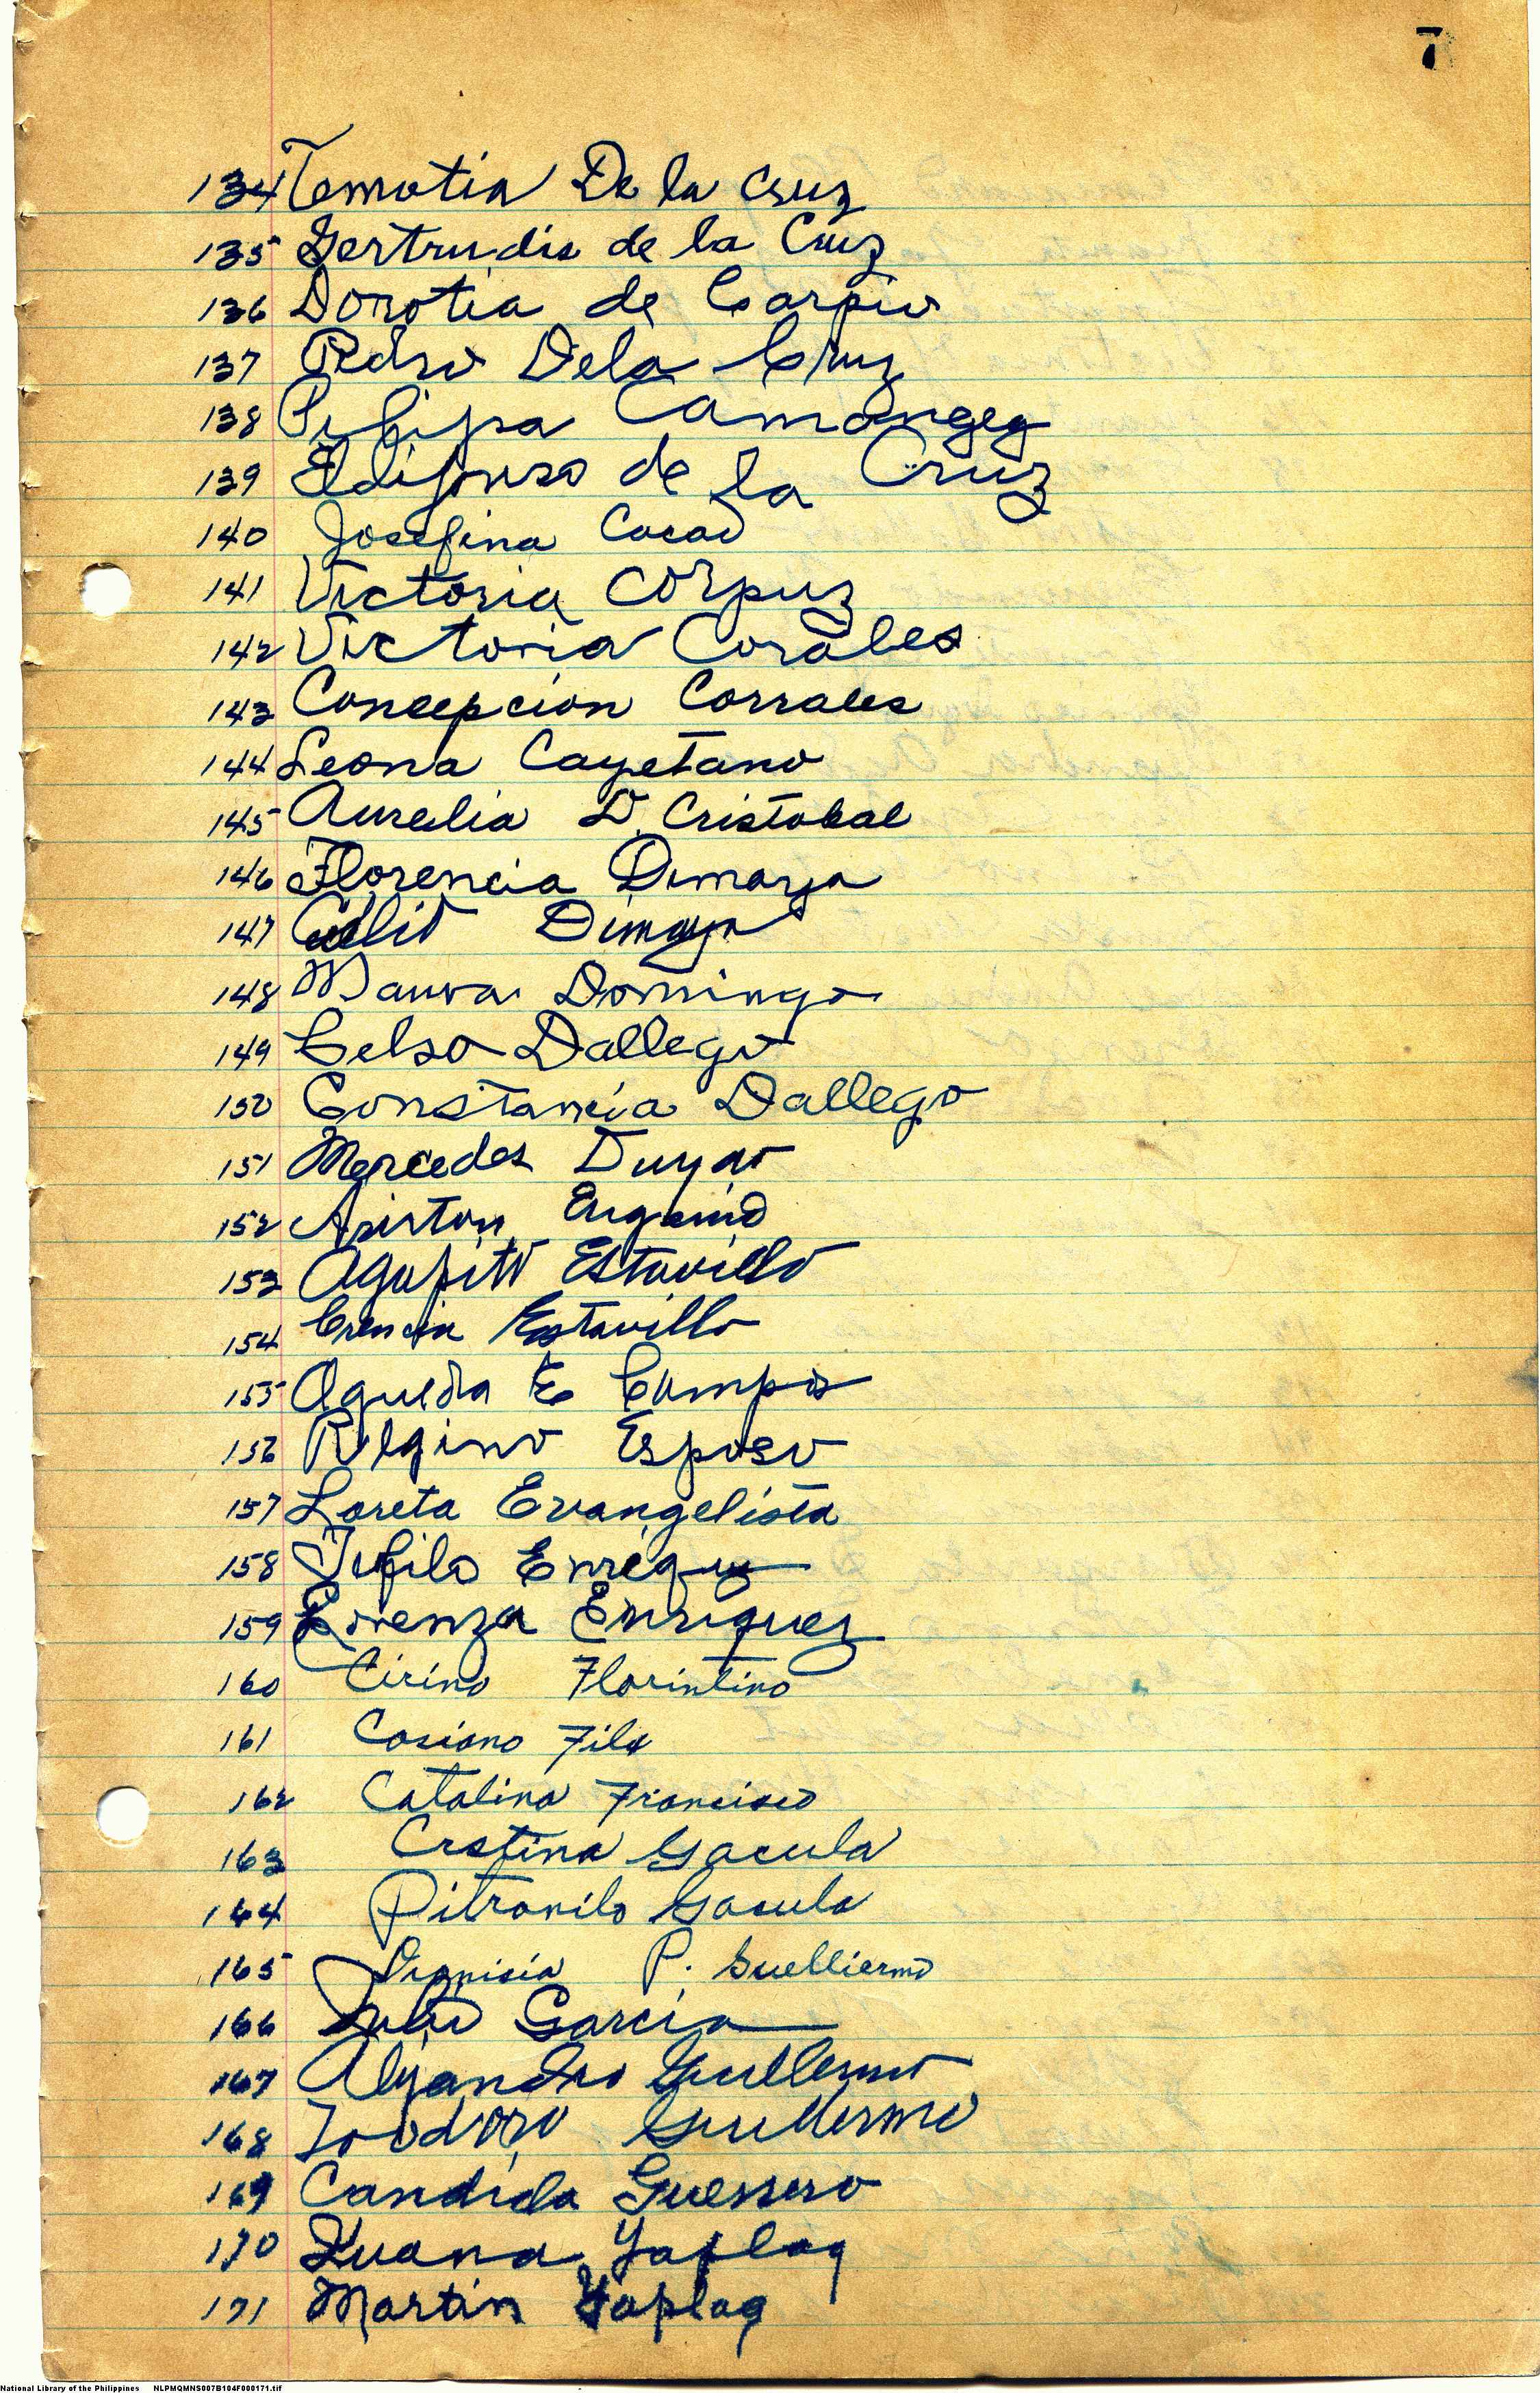 7
134 Temotia De la Cruz
135 Gertrudis de la Cruz
136 Dorotia de Carpio
137 Pedro Dela Cruz
138 Pilipa Camangeg
139 Eldifonso de la Cruz
140 Josefina Cacad
141 Victoria Corpuz
142 Victoria Corales
143 Concepcion Corrales
144 Leona Cayetano
145 Aurelia D. Cristobal
146 Florencia Dimaya
147 Dimaya
148 Maura Domingo
149 Celso Dallego
150 Constancia Dallego
151 Mercedes Duyao
152 Ariston
153 Agapito Estavillo
154 Crencia Estavillo
155 Agueda E Campos
156 Regino Esposo
157 Loreta Evangelista
158 Tufilo Enriquez
159 Lorenza Enriquez
160 Cirino Florintino
161 Casiano File
162 Catalina Francisco
163 Crstina Gacula
164 Pitronilo Gacula
165 Dionisia P. Guelliermo
166 Julio Garcia
167 Alejandro Guillermo
168 Toodoro Guillermo
169 Candida Guerrero
170 Juana Yaplag
171 Martin Yaplag
National Library of the Philippines NLPMQMNS007B104F000171.tif